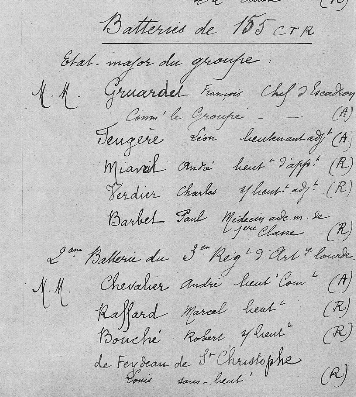 Batteries de 155 C.T.R
Etat-major du groupe :
M.M. Gruardel François Chef d'Escadron
Comm' le Groupe - - (A)
Feugère Léon lieutenant adjt (A)
André lieut' d'appt (R)
Verdier Charles s/lieut' adjt (R)
Barbet Paul Médecin aide m. de
1ère Classe (R)
2eme Batterie du 3em Regt d'Arte lourde
M.M. Chevalier André lieut' Comt (A)
Raffard Marcel lieut' (R)
Bouché Robert s/lieut' (R)
de Feydeau de St Christophe
Louis sous-lieut' (R)